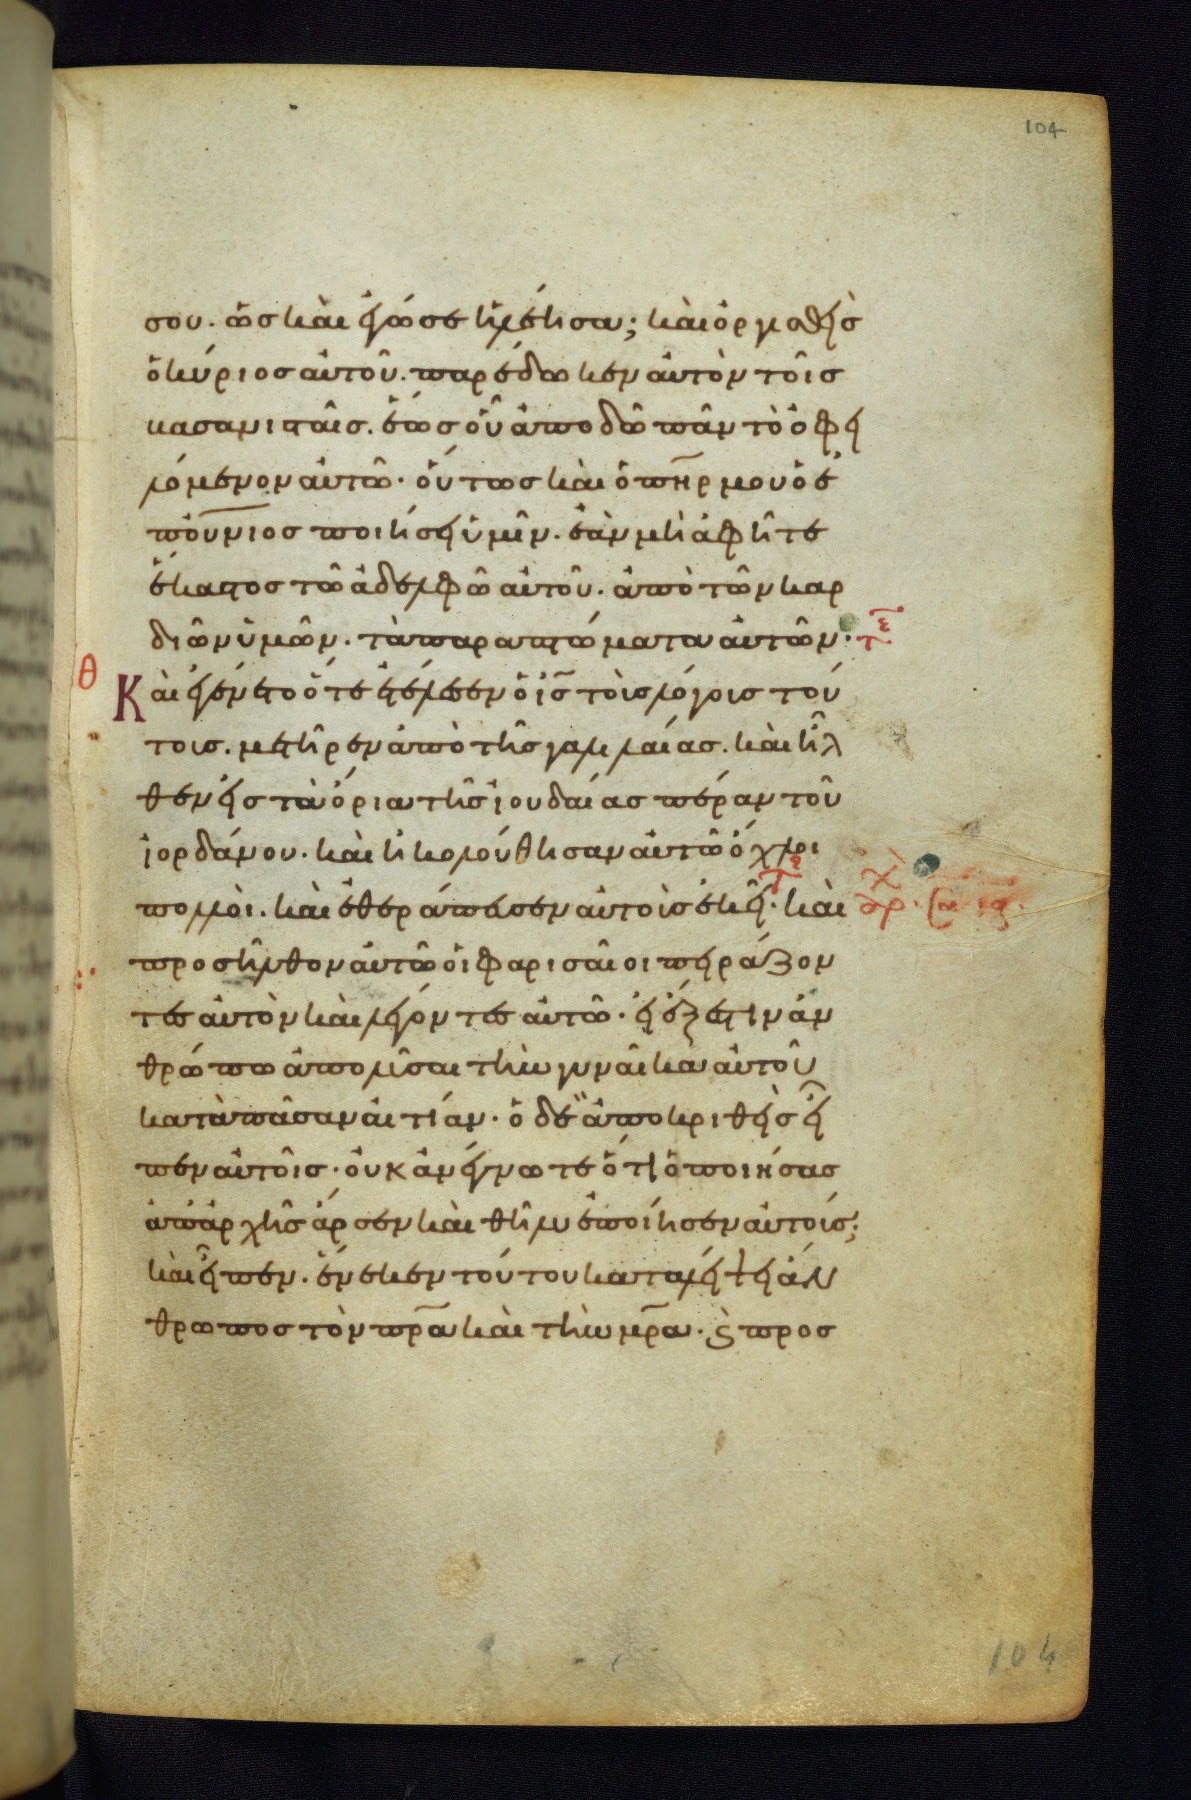 104
σου. ὡς καὶ ἐγώ σε ἠλέησα; καὶ ὀργισθεὶς
ὁ κύριος αὐτοῦ. παρέδωκεν αὐτὸν τοῖς
βασανισταῖς. ἕως οὗ ἀποδῶ πᾶν τὸ ὀφει
λόμενον αὐτῶ. οὕτως καὶ ὁ π̅η̅ρ μου ὁ ἐ
πο̅υ̅νιος ποιήσει ὑμῖν. ἐὰν μὴ ἀφῆτε
ἕκαστος τῶ ἀδελφῶ αὐτοῦ. ἀπὸ τῶν καρ
διῶν ὑμῶν. τὰ παραπτώματα αὐτῶν. τε
θ
Καὶ ἐγένετο ὅτε ἐτέλεσεν ὁ ι̅ς̅ τοὺς λόγους τού
τους. μετῆρεν ἀπὸ τῆς γαλιλαίας. καὶ ἦλ
θεν εἰς τὰ ὅρια τῆς ἰουδαίας πέραν τοῦ
ἰορδάνου. καὶ ἠκολούθησαν αὐτῶ ὄχλοι
πολλοὶ. καὶ ἐθεράπευσεν αὐτοὺς ἐκεῖ. καὶ
προσῆλθον αὐτῶ οἱ φαρισαῖοι πειράζον
τες αὐτὸν καὶ λέγοντες αὐτῶ. εἰ ἔξεστιν ἀν
θρώπω ἀπολῦσαι τὴν γυναῖκα αὐτοῦ
κατὰ πᾶσαν αἰτίαν. ὁ δὲ ἀποκριθεὶς εἶ
πεν αὐτοῖς. οὐκ ἀνέγνωτε ὅτι ὁ ποιήσας
ἀπ᾽ ἀρχῆς ἄρσεν καὶ θῆλυ ἐποίησεν αὐτούς;
καὶ εἶπεν. ἕνεκεν τούτου καταλείψει ἄν
θρωπος τὸν π̅ρ̅α καὶ τὴν μ̅ρ̅α. ϗ προς
104